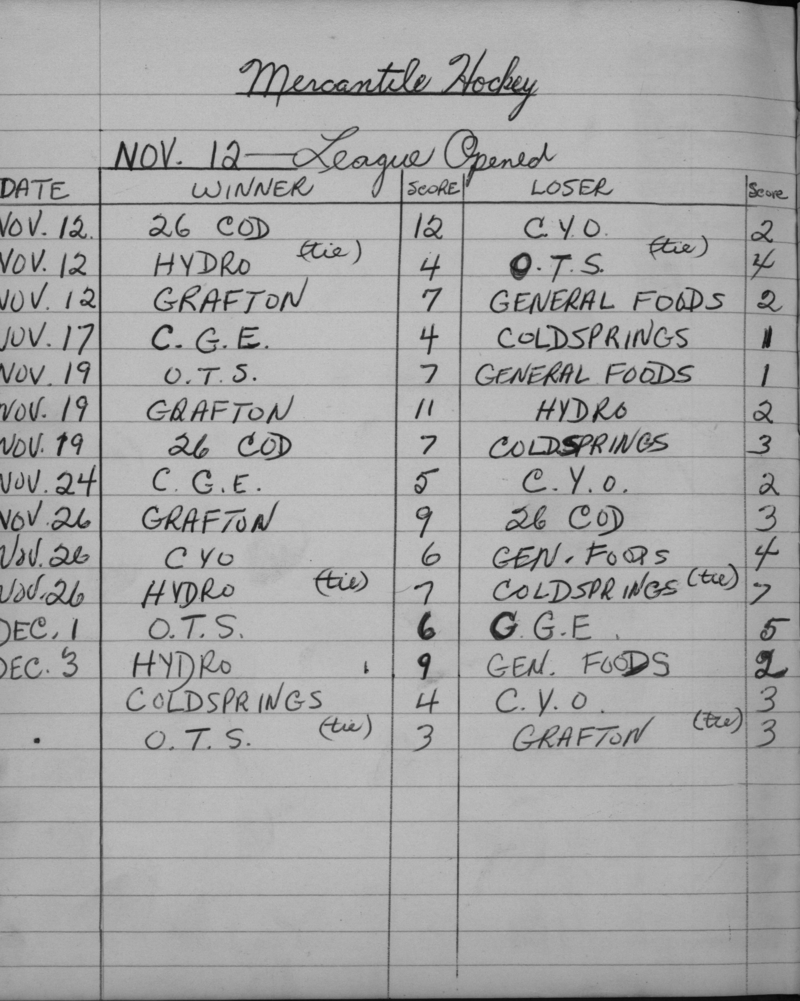 Mercantile Hockey
NOV. 12 — League Opened
DATE WINNER SCORE LOSER Score
NOV. 12. 26 COD 12 C.Y.O. 2
NOV. 12 HYDRO (tie) 4 O.T.S. (tie) 4
NOV. 12 GRAFTON 7 GENERAL FOODS 2
NOV. 17 C.G.E. 4 COLDSPRINGS 1
NOV. 19 O.T.S. 7 GENERAL FOODS 1
NOV. 19 GRAFTON 11 HYDRO 2
NOV. 19 26 COD 7 COLDSPRINGS 3
NOV. 24 C.G.E. 5 C.Y.O. 2
NOV. 26 GRAFTON 9 26 COD 3
NOV. 26 CYO 6 GEN. FOODS 4
NOV. 26 HYDRO (tie) 7 COLDSPRINGS (tie) 7
DEC. 1 O.T.S. 6 G.G.E. 5
DEC. 3 HYDRO 9 GEN. FOODS 2
COLDSPRINGS 4 C.Y.O. 3
O.T.S. (tie) 3 GRAFTON (tie) 3